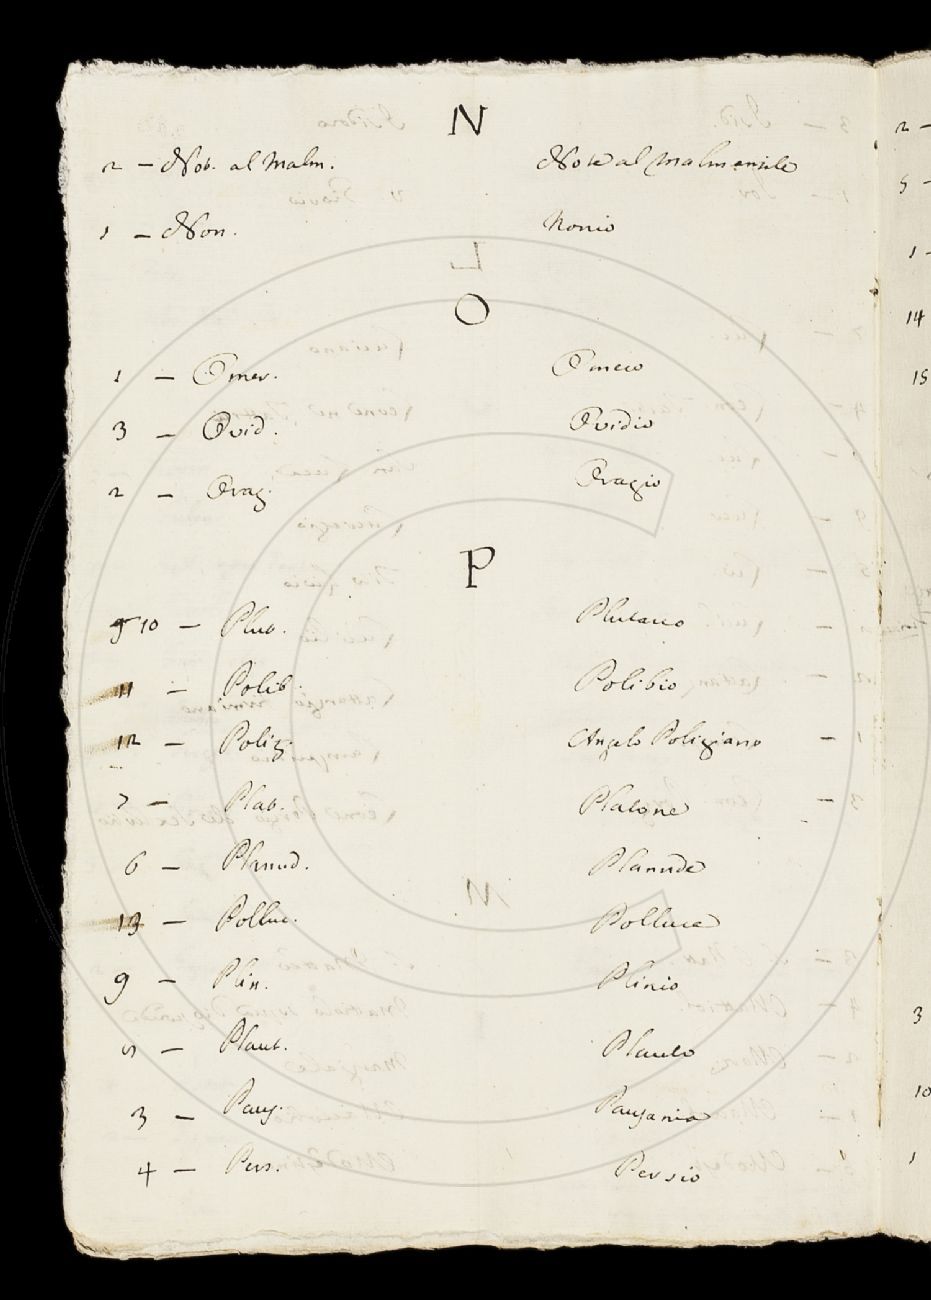 N
2 – Not. al Malm. Note al Malmantile
1 – Non. Nonio
O
1 – Omer. Omero
3 – Ovid. Ovidio
2 – Orag. Oragio
P
10 – Plut. Plutarco
11 – Polib. Polibio
12 – Polig. Angelo Poligiano
7 – Plat. Platone
6 – Planud. Planude
13 – Polluc. Polluce
9 – Plin. Plinio
5 – Plaut. Plauto
3 – Paus. Pausania
4 – Pers. Persio
2 –
5 –
1 –
14
15
3
10
1